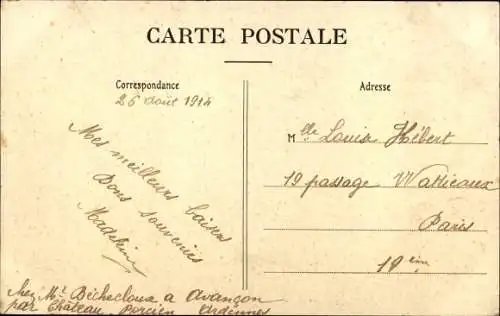 CARTE POSTALE
Correspondance
26 août 1914
Mes meilleurs baisers
Bons souvenirs
Madeleine
chez Mr Béchecloux a Avançon
par Château Porcien Ardennes
Adresse
Mlle Louisa Hébert
19 passage Wattieaux
Paris
19ème